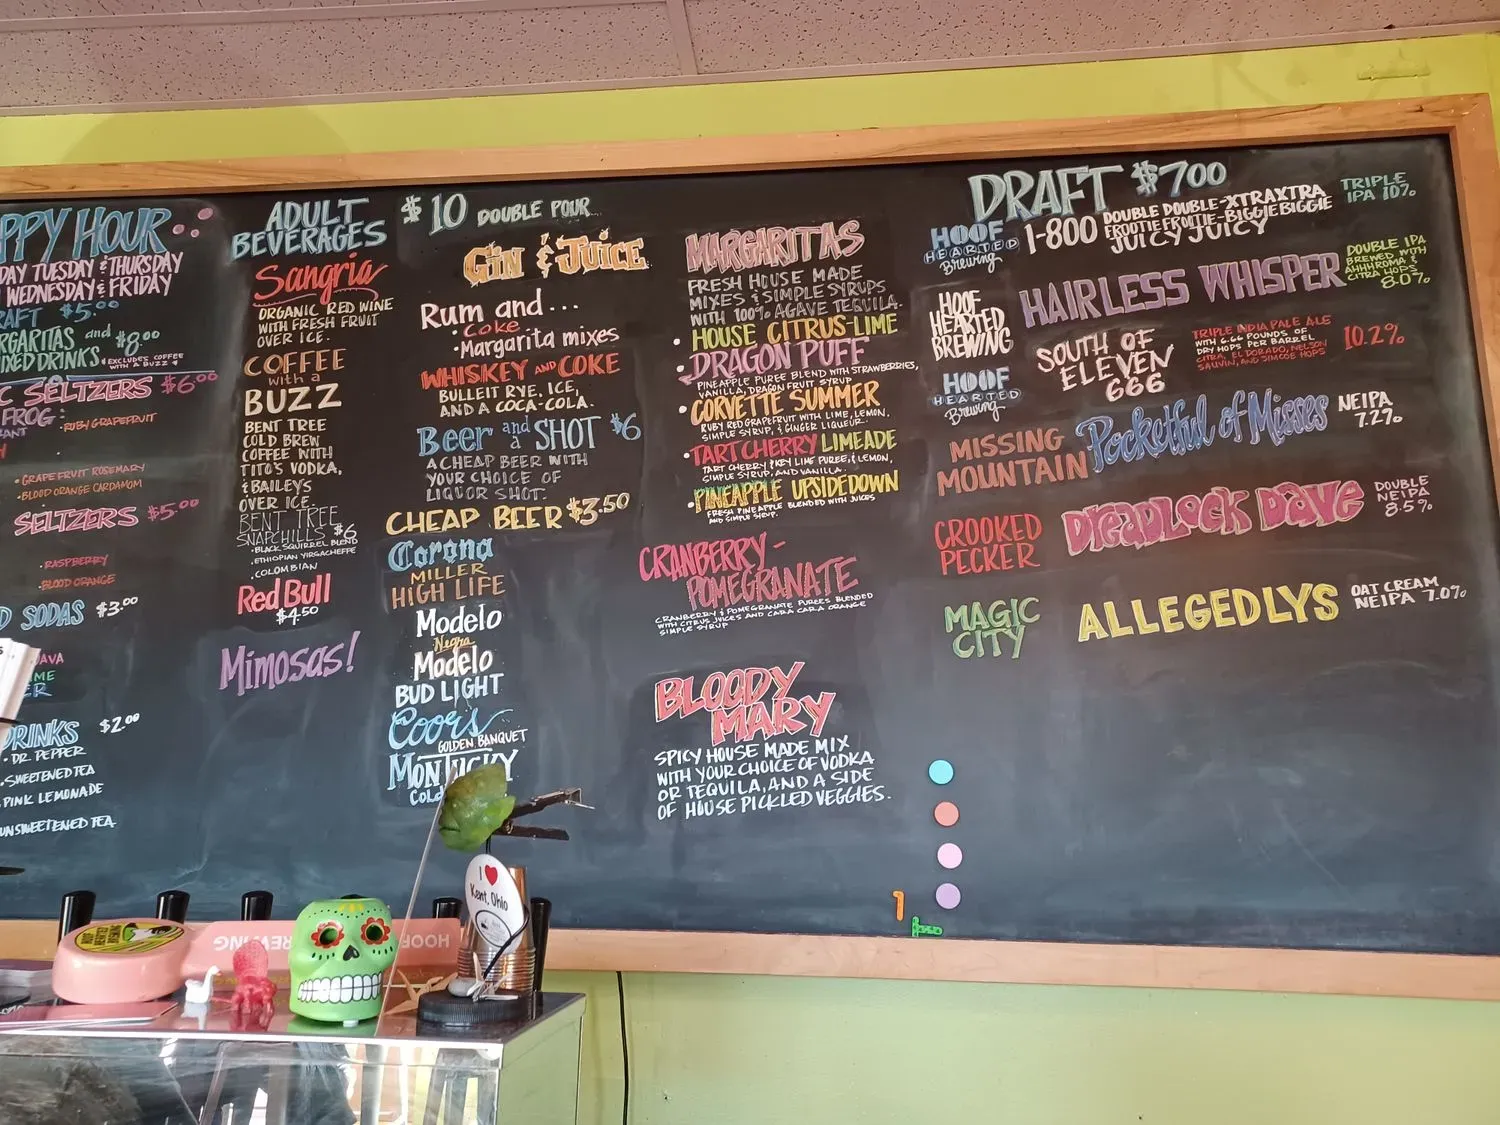 PPY HOUR
DAY TUESDAY & THURSDAY
WEDNESDAY & FRIDAY
RAFT $5.00
RGARITAS and $8.00
IXED DRINKS *EXCLUDES COFFEE
WITH A BUZZ *
C SELTZERS $6.00
FROG:
•RUBY GRAPEFRUIT
•GRAPEFRUIT ROSEMARY
•BLOOD ORANGE CARDAMOM
SELTZERS $5.00
•RASPBERRY
•BLOOD ORANGE
D SODAS $3.00
DRINKS $2.00
•DR. PEPPER
•SWEETENED TEA
PINK LEMONADE
UNSWEETENED TEA
ADULT
BEVERAGES
Sangria
ORGANIC RED WINE
WITH FRESH FRUIT
OVER ICE.
COFFEE
with a
BUZZ
BENT TREE
COLD BREW
COFFEE WITH
TITO'S VODKA,
& BAILEYS
OVER ICE.
BENT TREE
SNAPCHILLS $6
•BLACK SQUIRREL BLEND
•ETHIOPIAN YIRGACHEFFE
•COLOMBIAN
Red Bull
$4.50
Mimosas!
$10 DOUBLE POUR
GIN & JUICE
Rum and ...
•Coke
•Margarita mixes
WHISKEY AND COKE
BULLEIT RYE, ICE,
AND A COCA-COLA.
Beer and a SHOT $6
A CHEAP BEER WITH
YOUR CHOICE OF
LIQUOR SHOT.
CHEAP BEER $3.50
Corona
MILLER
HIGH LIFE
Modelo
Negra
Modelo
BUD LIGHT
Coors
GOLDEN BANQUET
MONTUCKY
COLD
MARGARITAS
FRESH HOUSE MADE
MIXES & SIMPLE SYRUPS
WITH 100% AGAVE TEQUILA.
•HOUSE CITRUS-LIME
•DRAGON PUFF
PINEAPPLE PUREE BLEND WITH STRAWBERRIES,
VANILLA, DRAGON FRUIT SYRUP
•CORVETTE SUMMER
RUBY RED GRAPEFRUIT WITH LIME, LEMON,
SIMPLE SYRUP, & GINGER LIQUEUR.
•TART CHERRY LIMEADE
TART CHERRY & KEY LIME PUREE, & LEMON,
SIMPLE SYRUP, AND VANILLA.
•PINEAPPLE UPSIDEDOWN
FRESH PINEAPPLE BLENDED WITH JUICES
AND SIMPLE SYRUP.
CRANBERRY-
POMEGRANATE
CRANBERRY & POMEGRANATE PUREES BLENDED
WITH CITRUS JUICES AND CARA CARA ORANGE
SIMPLE SYRUP
BLOODY
MARY
SPICY HOUSE MADE MIX
WITH YOUR CHOICE OF VODKA
OR TEQUILA, AND A SIDE
OF HOUSE PICKLED VEGGIES.
DRAFT $7.00
HOOF
HEARTED
Brewing
1-800 DOUBLE DOUBLE-XTRAXTRA
FROOTIE FROOTIE-BIGGIE BIGGIE
JUICY JUICY
TRIPLE
IPA 10%
HOOF
HEARTED
BREWING
HAIRLESS WHISPER
DOUBLE IPA
BREWED WITH
AHHHROMA &
CITRA HOPS
8.0%
HOOF
HEARTED
Brewing
SOUTH OF
ELEVEN
666
TRIPLE INDIA PALE ALE
WITH 6.66 POUNDS OF
DRY HOPS PER BARREL
CITRA, EL DORADO, NELSON
SAUVIN, AND SIMCOE HOPS
10.2%
MISSING
MOUNTAIN
Pocketful of Misses
NEIPA
7.2%
CROOKED
PECKER
DREADLOCK DAVE
DOUBLE
NEIPA
8.5%
MAGIC
CITY
ALLEGEDLYS
OAT CREAM
NEIPA 7.0%
I ♥
Kent, Ohio
HOOF
REWING